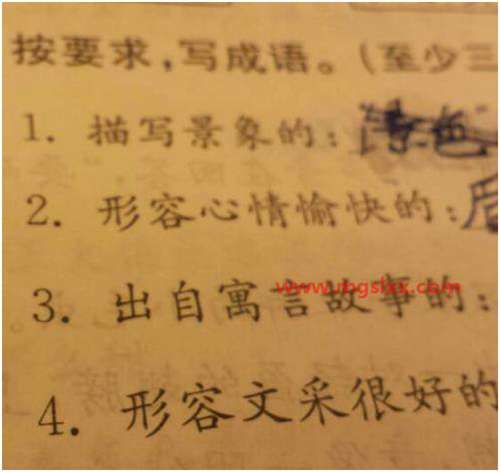 按要求,写成语。(至少三
1. 描写景象的:
2. 形容心情愉快的:后
3. 出自寓言故事的:
4. 形容文采很好的